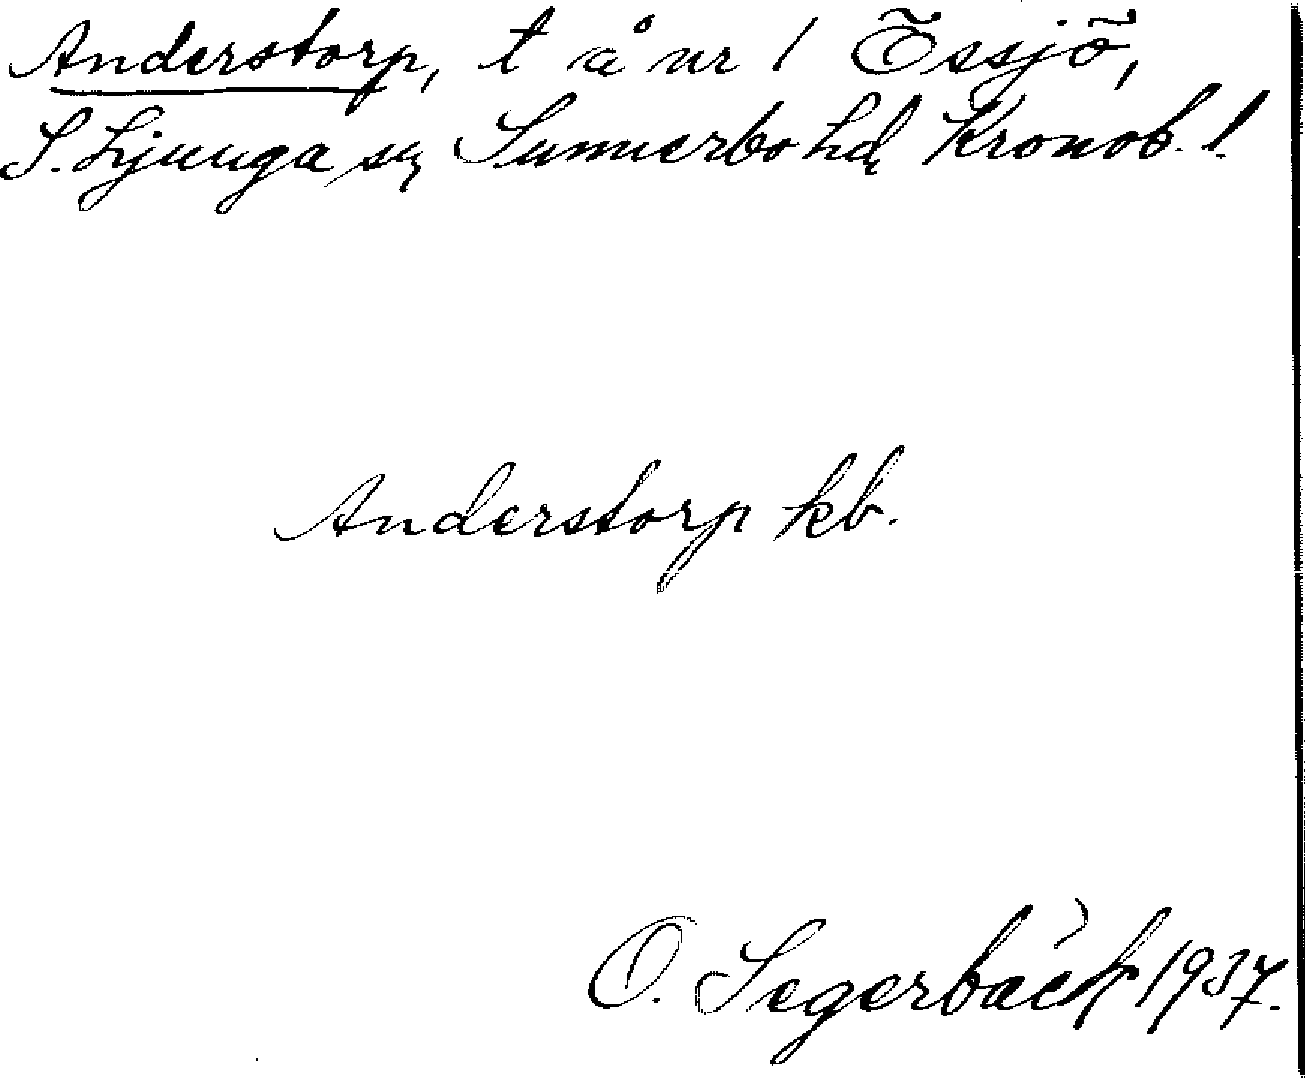 Anderstorp, t å nr 1 Össjö,
S. Ljunga sn, Sunnerbo hd, Kronob. l.
Anderstorp kb.
O. Segerbäck 1937.